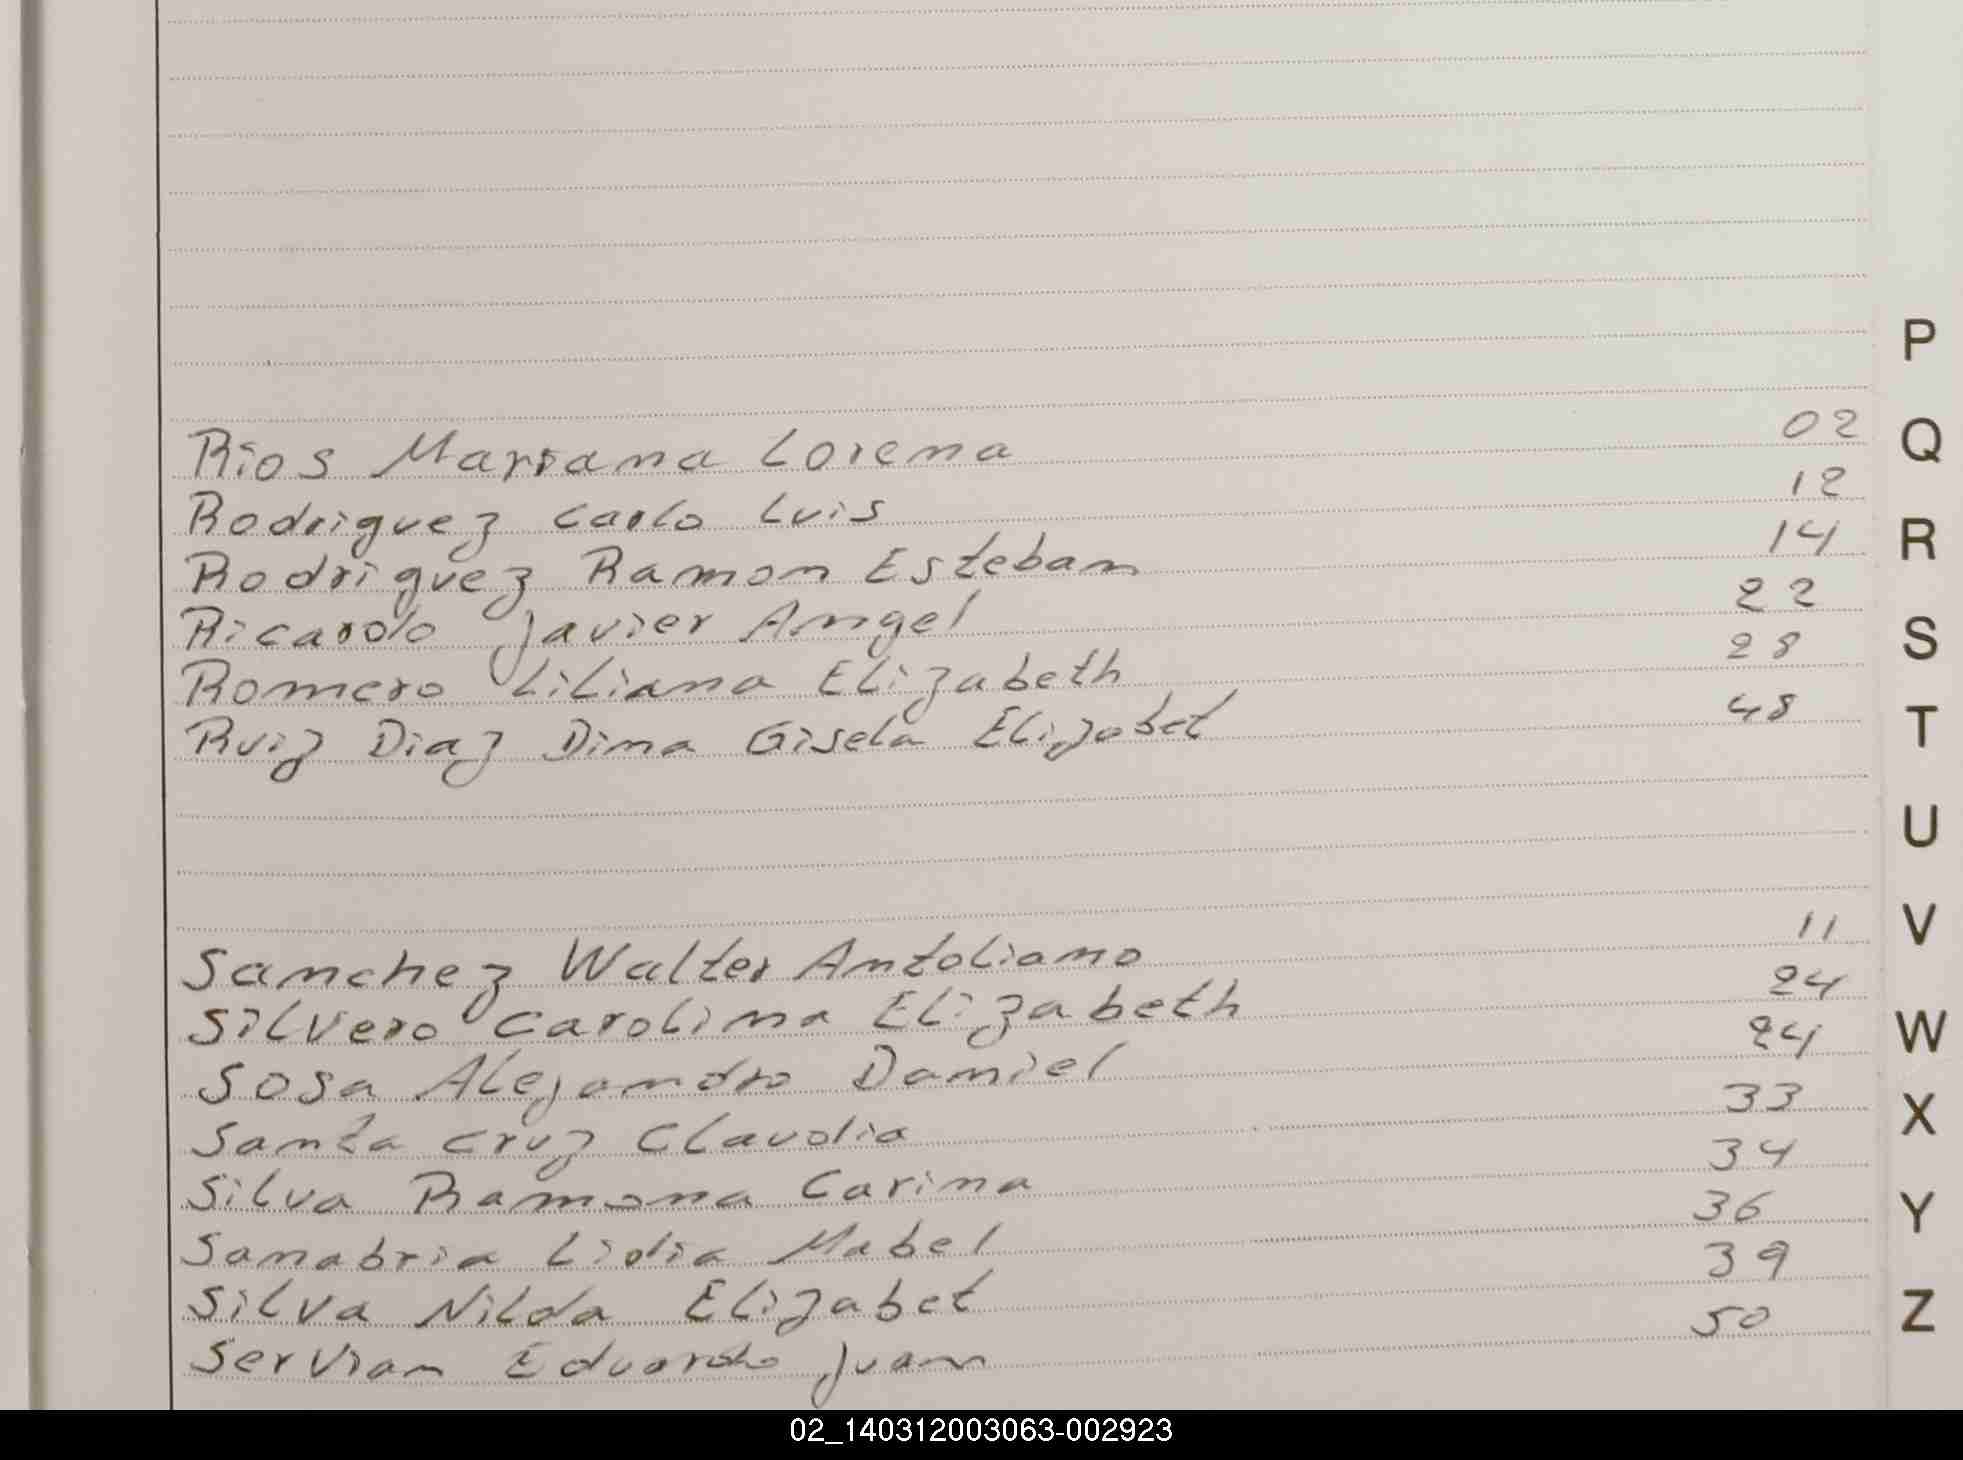 Rios Mariana Lorena 02
Rodriguez Carlo Luis 12
Rodriguez Ramon Esteban 14
Ricardo Javier Angel 22
Romero Liliana Elizabeth 28
Ruiz Diaz Dina Gisela Elizabet 48
Sanchez Walter Antoliano 11
Silvero Carolina Elizabeth 24
Sosa Alejandro Daniel 24
Santa Cruz Claudia 33
Silva Ramona Carina 34
Sanabria Lidia Mabel 36
Silva Nilda Elizabet 39
Servian Eduardo Juan 50
P
Q
R
S
T
U
V
W
X
Y
Z
02_140312003063-002923